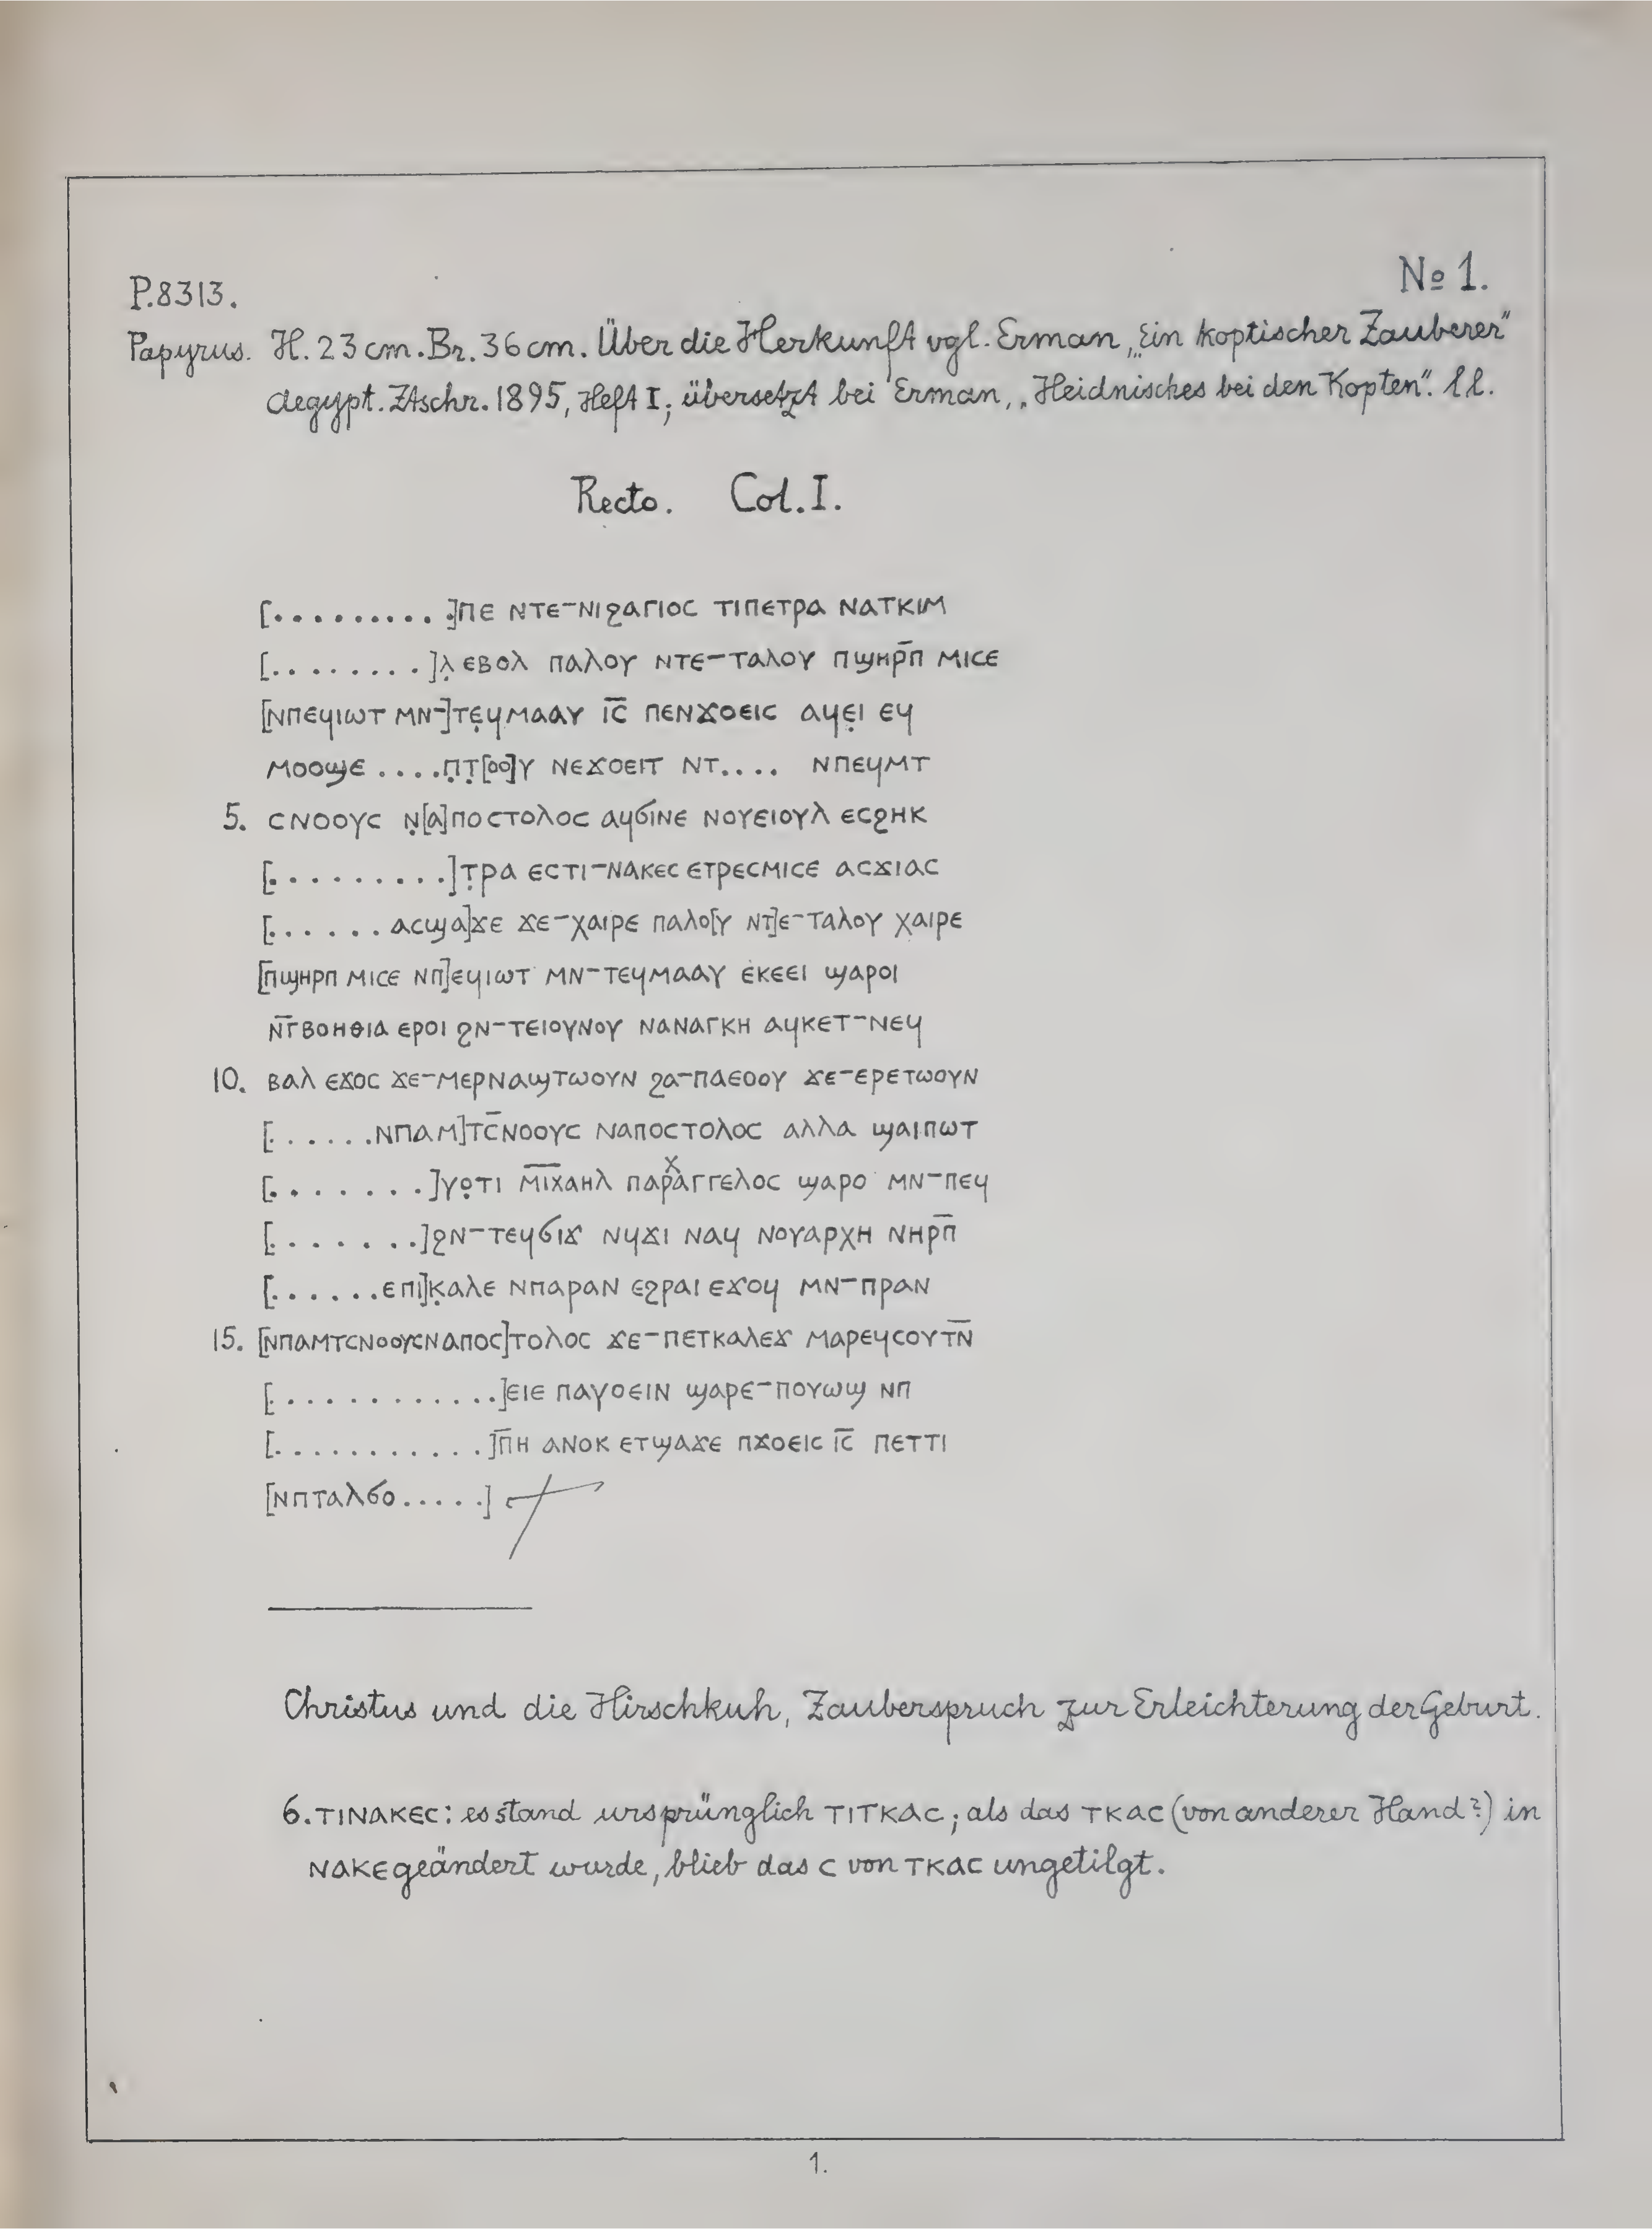 P.8313.
№ 1.
Papyrus. H. 23 cm. Br. 36 cm. Über die Herkunft vgl. Erman „Ein koptischer Zauberer"
aegypt. Ztschr. 1895, Heft I; übersetzt bei Erman, „Heidnisches bei den Kopten". l l.
Recto. Col. I.
[. . . . . . . . . .]ⲡⲉ ⲛⲧⲉ-ⲛⲓϩⲁⲅⲓⲟⲥ ⲧⲓⲡⲉⲧⲣⲁ ⲛⲁⲧⲕⲓⲙ
[. . . . . . . .]ⲗ̣ ⲉⲃⲟⲗ ⲡⲁⲗⲟⲩ ⲛⲧⲉ-ⲧⲁⲗⲟⲩ ⲡϣⲏⲣ̅ⲡ ⲙⲓⲥⲉ
[ⲛⲡⲉϥⲓⲱⲧ ⲙⲛ-]ⲧⲉ̣ϥⲙⲁⲁⲩ ⲓ̅ⲥ̅ ⲡⲉⲛϫⲟⲉⲓⲥ ⲁϥⲉ̣ⲓ ⲉϥ
ⲙⲟⲟϣⲉ . . . . ⲡ̣ⲧ̣[ⲟⲟ]ⲩ ⲛⲉϫⲟⲉⲓⲧ ⲛⲧ. . . . ⲛⲡⲉϥⲙⲧ
5. ⲥⲛⲟⲟⲩⲥ ⲛ̣[ⲁ]ⲡⲟⲥⲧⲟⲗⲟⲥ ⲁϥϭⲓⲛⲉ ⲛⲟⲩⲉⲓⲟⲩⲗ ⲉⲥϩⲏⲕ
[. . . . . . . . .]ⲧ̣ⲣⲁ ⲉⲥⲧⲓ-ⲛⲁⲕⲉⲥ ⲉⲧⲣⲉⲥⲙⲓⲥⲉ ⲁⲥϫⲓⲁⲥ
[. . . . . . ⲁⲥϣⲁ]ϫⲉ ϫⲉ-ⲭⲁⲓⲣⲉ ⲡⲁⲗⲟ[ⲩ ⲛⲧ]ⲉ-ⲧⲁⲗⲟⲩ ⲭⲁⲓⲣⲉ
[ⲡϣⲏⲣⲡ ⲙⲓⲥⲉ ⲛⲡ]ⲉϥⲓⲱⲧ ⲙⲛ-ⲧⲉϥⲙⲁⲁⲩ ⲉⲕⲉⲉⲓ ϣⲁⲣⲟⲓ
ⲛ̅ⲅ̅ⲃⲟⲏⲑⲓⲁ ⲉⲣⲟⲓ ϩⲛ-ⲧⲉⲓⲟⲩⲛⲟⲩ ⲛⲁⲛⲁⲅⲕⲏ ⲁϥⲕⲉⲧ-ⲛⲉϥ
10. ⲃⲁⲗ ⲉϫⲟⲥ ϫⲉ-ⲙⲉⲣⲛⲁϣⲧⲱⲟⲩⲛ ϩⲁ-ⲡⲁⲉⲟⲟⲩ ϫⲉ-ⲉⲣⲉⲧⲱⲟⲩⲛ
[. . . . . .ⲛⲡⲁⲙ]ⲧⲥ̅ⲛⲟⲟⲩⲥ ⲛⲁⲡⲟⲥⲧⲟⲗⲟⲥ ⲁⲗⲗⲁ ϣⲁⲓⲡⲱⲧ
[. . . . . . . .]ⲩⲟ̣ⲧⲓ ⲙ̅ⲓ̅ⲭⲁⲏⲗ ⲡⲁⲣⲭⲁⲅⲅⲉⲗⲟⲥ ϣⲁⲣⲟ ⲙⲛ-ⲡⲉϥ
[. . . . . . .]ϩⲛ-ⲧⲉϥϭⲓϫ ⲛϥϫⲓ ⲛⲁϥ ⲛⲟⲩⲁⲣⲭⲏ ⲛⲏⲣ̅ⲡ̅
[. . . . . .ⲉⲡⲓ]ⲕ̣ⲁⲗⲉ ⲛⲡⲁⲣⲁⲛ ⲉϩⲣⲁⲓ ⲉϫⲟϥ ⲙⲛ-ⲡⲣⲁⲛ
15. [ⲛⲡⲁⲙⲧⲥⲛⲟⲟⲩⲥⲛⲁⲡⲟⲥ]ⲧⲟⲗⲟⲥ ϫⲉ-ⲡⲉⲧⲕⲁⲗⲉϫ ⲙⲁⲣⲉϥⲥⲟⲩⲧ̅ⲛ̅
[. . . . . . . . . . . .]ⲉⲓⲉ ⲡⲁⲩⲟⲉⲓⲛ ϣⲁⲣⲉ-ⲡⲟⲩⲱϣ ⲛⲡ
[. . . . . . . . . . .]ⲡ̅ⲏ ⲁⲛⲟⲕ ⲉⲧϣⲁϫⲉ ⲡϫⲟⲉⲓⲥ ⲓ̅ⲥ̅ ⲡⲉⲧⲧⲓ
[ⲛⲡⲧⲁⲗϭⲟ. . . . .]
Christus und die Hirschkuh, Zauberspruch zur Erleichterung der Geburt.
6. ⲧⲓⲛⲁⲕⲉⲥ: es stand ursprünglich ⲧⲓⲧⲕⲁⲥ; als das ⲧⲕⲁⲥ (von anderer Hand?) in
ⲛⲁⲕⲉ geändert wurde, blieb das ⲥ von ⲧⲕⲁⲥ ungetilgt.
1.